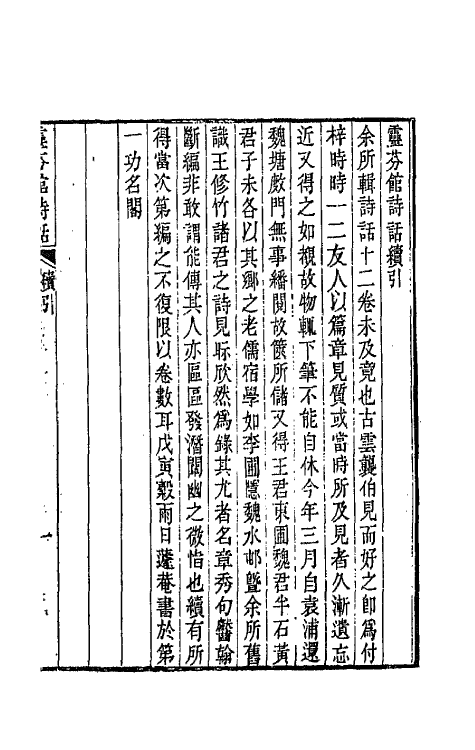 靈芬館詩話續引
余所輯詩話十二卷未及竟也古雲襲伯見而好之即為付
梓時時一二友人以篇章見質或當時所及見者久漸遺忘
近又得之如覩故物輒下筆不能自休今年三月自袁浦還
魏塘戲門無事繙閱故篋所儲又得王君東圃魏君半石黃
君子未各以其鄉之老儒宿學如李圃隱魏水邨曁余所舊
識王修竹諸君之詩見眎欣然為錄其尤者名章秀句臠翰
斷編非敢謂能傳其人亦區區發潛闡幽之微惜也續有所
得當次第編之不復限以卷數耳戊寅穀雨日蘧菴書於第
一功名閣
靈芬館詩話
續引
一